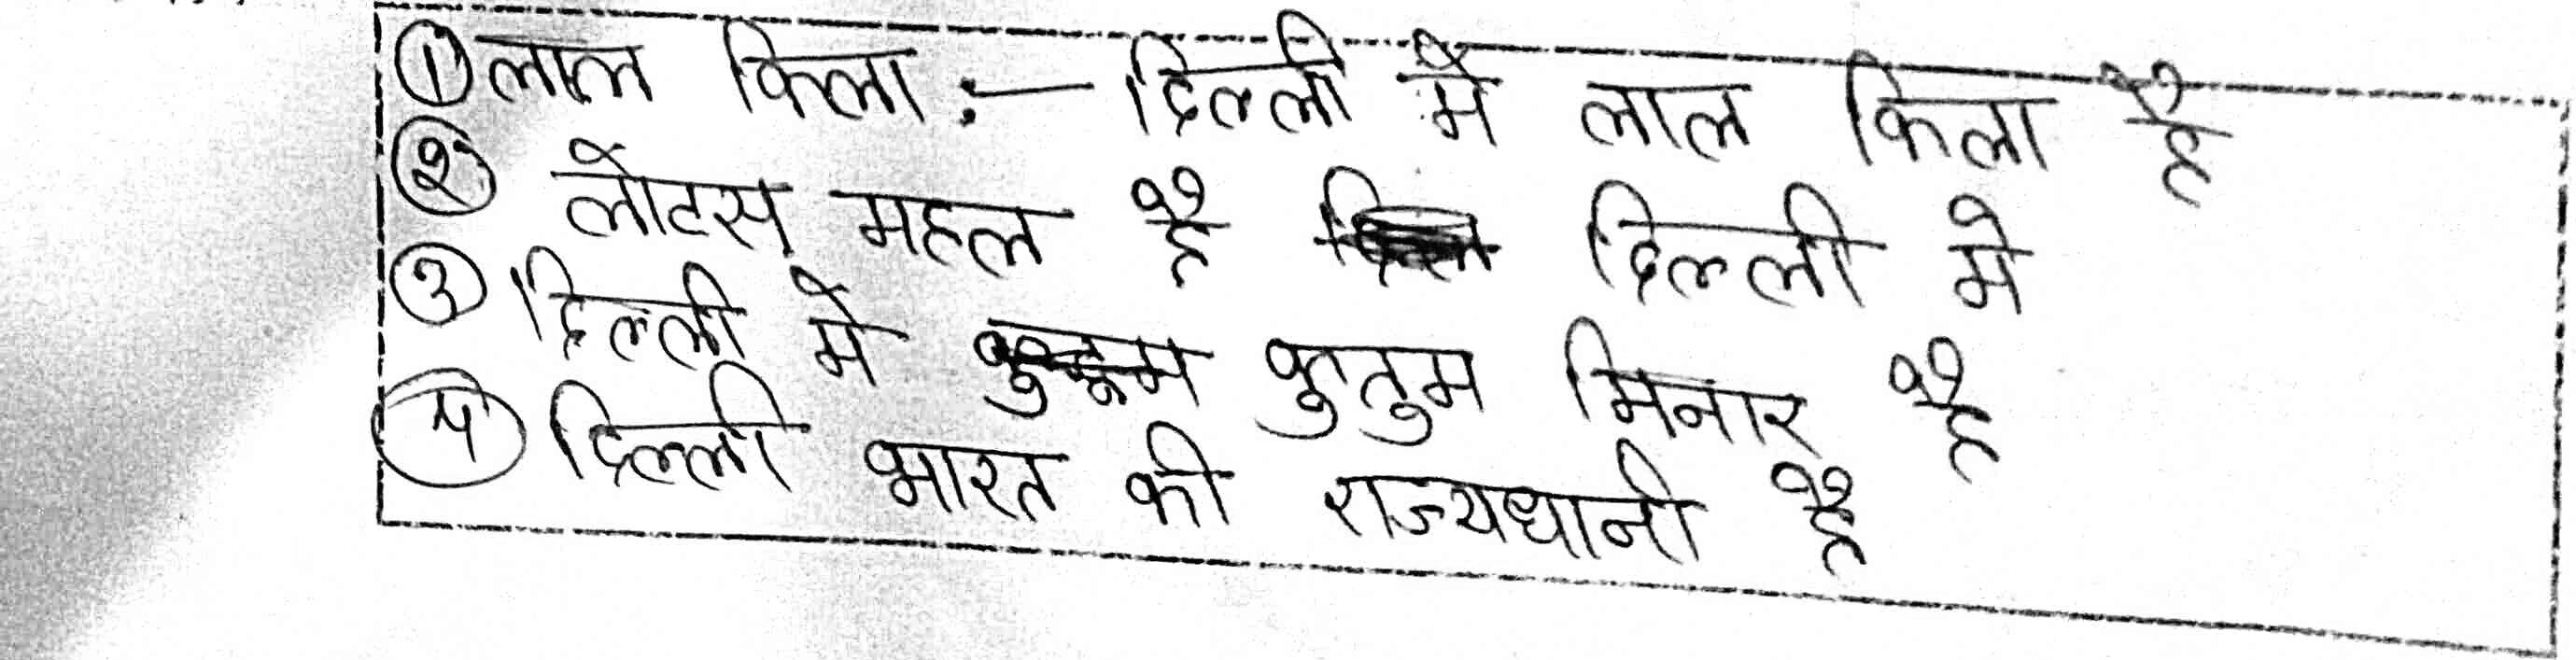 ① लाल किला :- दिल्ली मे लाल किला है
② लोटस महल है दिल्ली मे
③ दिल्ली मे कुतुम मिनार है
④ दिल्ली भारत की राज्यधानी है